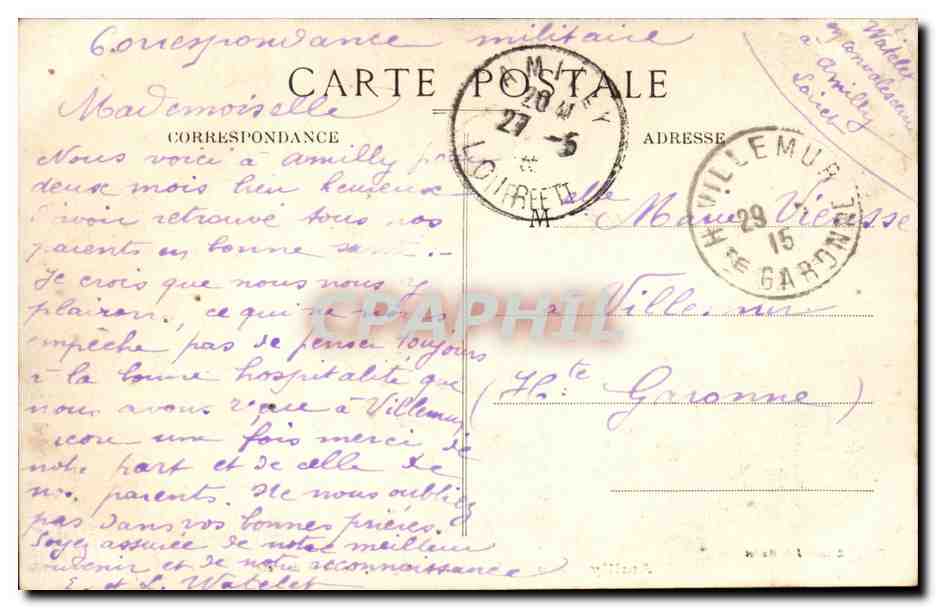 Correspondance militaire
E. Watelet
en convalescence
à Amilly
Loiret
CARTE POSTALE
Mademoiselle
CORRESPONDANCE
ADRESSE
AMILLY
27 -5
LOIRET
VILLEMUR
29
15
Hte GARONNE
Nous voici à Amilly pour
deux mois bien heureux
d'avoir retrouvé tous nos
parents en bonne santé.-
Je crois que nous nous y
plairons, ce qui ne nous
empêche pas de penser toujours
à la bonne hospitalité que
nous avons reçue à Villemur
encore une fois merci de
notre part et de celle de
nos parents. Ne nous oubliez
pas dans vos bonnes prières.
Soyez assurée de notre meilleur
souvenir et de notre reconnaissance
E. et L. Watelet
M elle Marie
à Villemur
(Hte Garonne)
CPAPHIL